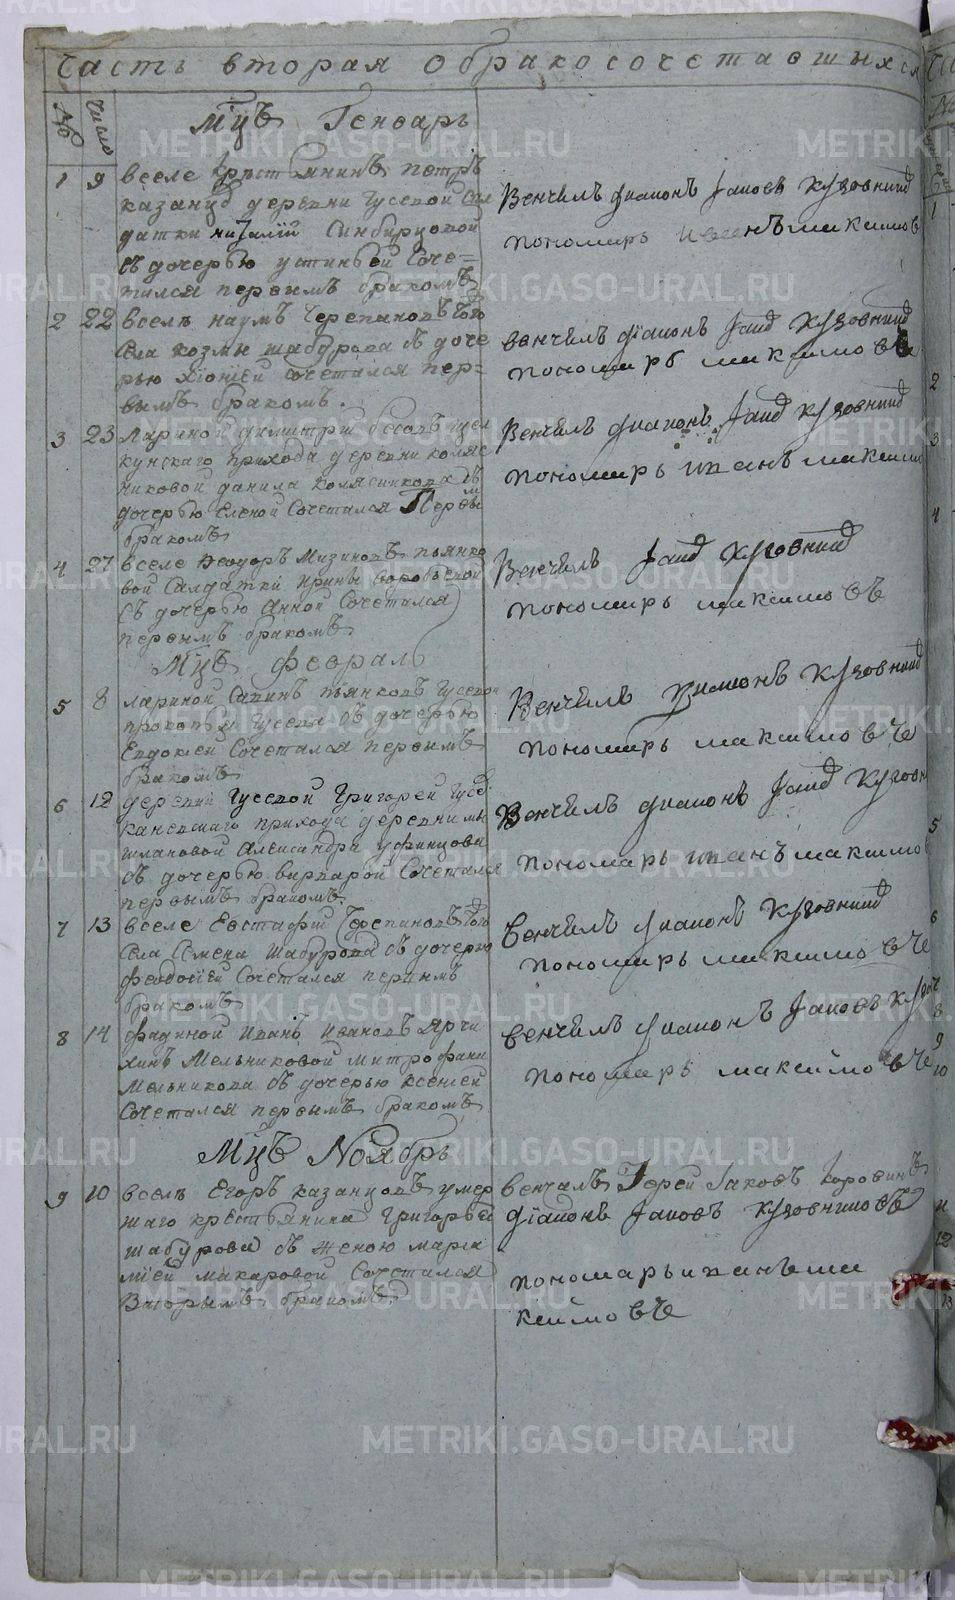 Часть вторая обракосочетавшихся
№ число
Мцъ Генварь
1 9 вселе крестьянинъ петръ
казанцов деревни Гусевой Сол
датки наталiи Синбирцовой
съ дочерью устиньей Соче=
тался первымъ бракомъ
Венчилъ диаконъ Iаковъ Кузовников
пономарь иванъ максимов
2 22 вселе наумъ Черепановъ того
Села козмы шабурова съ доче
рью хiонiей сочетался пер=
вымъ бракомъ.
венчилъ дiаконъ Iаков Кузовников
пономарь максимовъ
3 23 Лариной димитрiй босовъ щел
кунскаго прихода деревни коляс
никовой данила колясникова съ
дочерью Еленой Сочетался Первы
м
бракомъ
Венчилъ диаконъ Iаков Кузовников
пономарь иванъ максимо
4 27 вселе Феодоръ Мизиновъ пьянко
вой Салдатки ирины воробьевой
Съ дочерью Анной Сочетался
первымъ бракомъ
Венчилъ Iаков Кузовников
пономарь максимовъ
Мцъ февраль
5 8 лариной Савинъ пьянковъ Гусевой
прокопья Гусева съ дочерью
Евдокiей Сочетался первымъ
бракомъ
Венчилъ диаконъ Кузовников
пономарь максимовъ
6 12 деревни Гусевой Григорей Гусев
каневскаго прихода деревни
Александра уфинцова
съ дочерью варварой Сочетался
первымъ бракомъ
Венчилъ диаконъ Iаков Кузовн
пономарь иванъ максимо
7 13 вселе Евстафiй Черепановъ того
Села Семена шабурова съ дочерью
феодосiей Сочетался первымъ
бракомъ
Венчилъ диаконъ Кузовников
пономарь максимовъ
8 14 фадиной Иванъ Ивановъ Ярчи
хинъ Мельниковой митрофана
Мельникова съ дочерью ксенiей
Сочетался первымъ бракомъ
Венчилъ диаконъ Iаковъ Кузов
пономарь максимовъ
Мцъ Ноябрь
9 10 вселъ Егоръ казанцовъ умер
шаго крестьянина Григорья
шабурова съ женою мариа
мiей макаровой Сочетался
Вторымъ бракомъ
венчалъ Iерей Iаковъ коровинъ
дiаконъ Iаковъ Кузовниковъ
пономарь иванъ ма
ксимовъ
METRIKI.GASO-URAL.RU